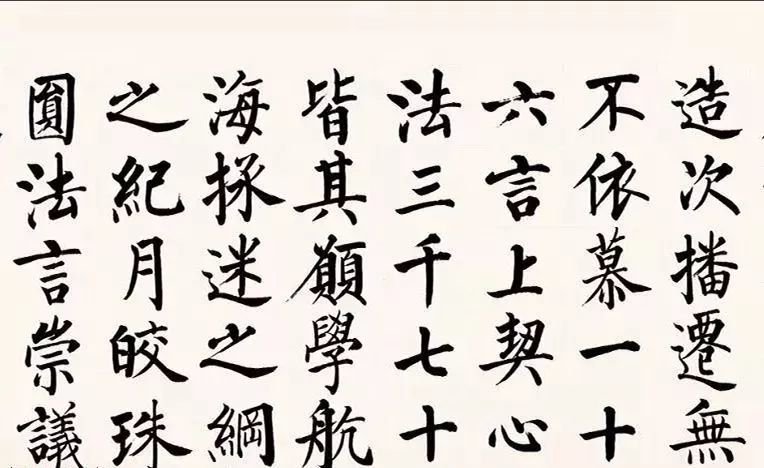 造次播遷無
不依慕一十
六言上契心
法三千七十
皆其願學航
海拯迷之綱
之紀月皎珠
圓法言崇議